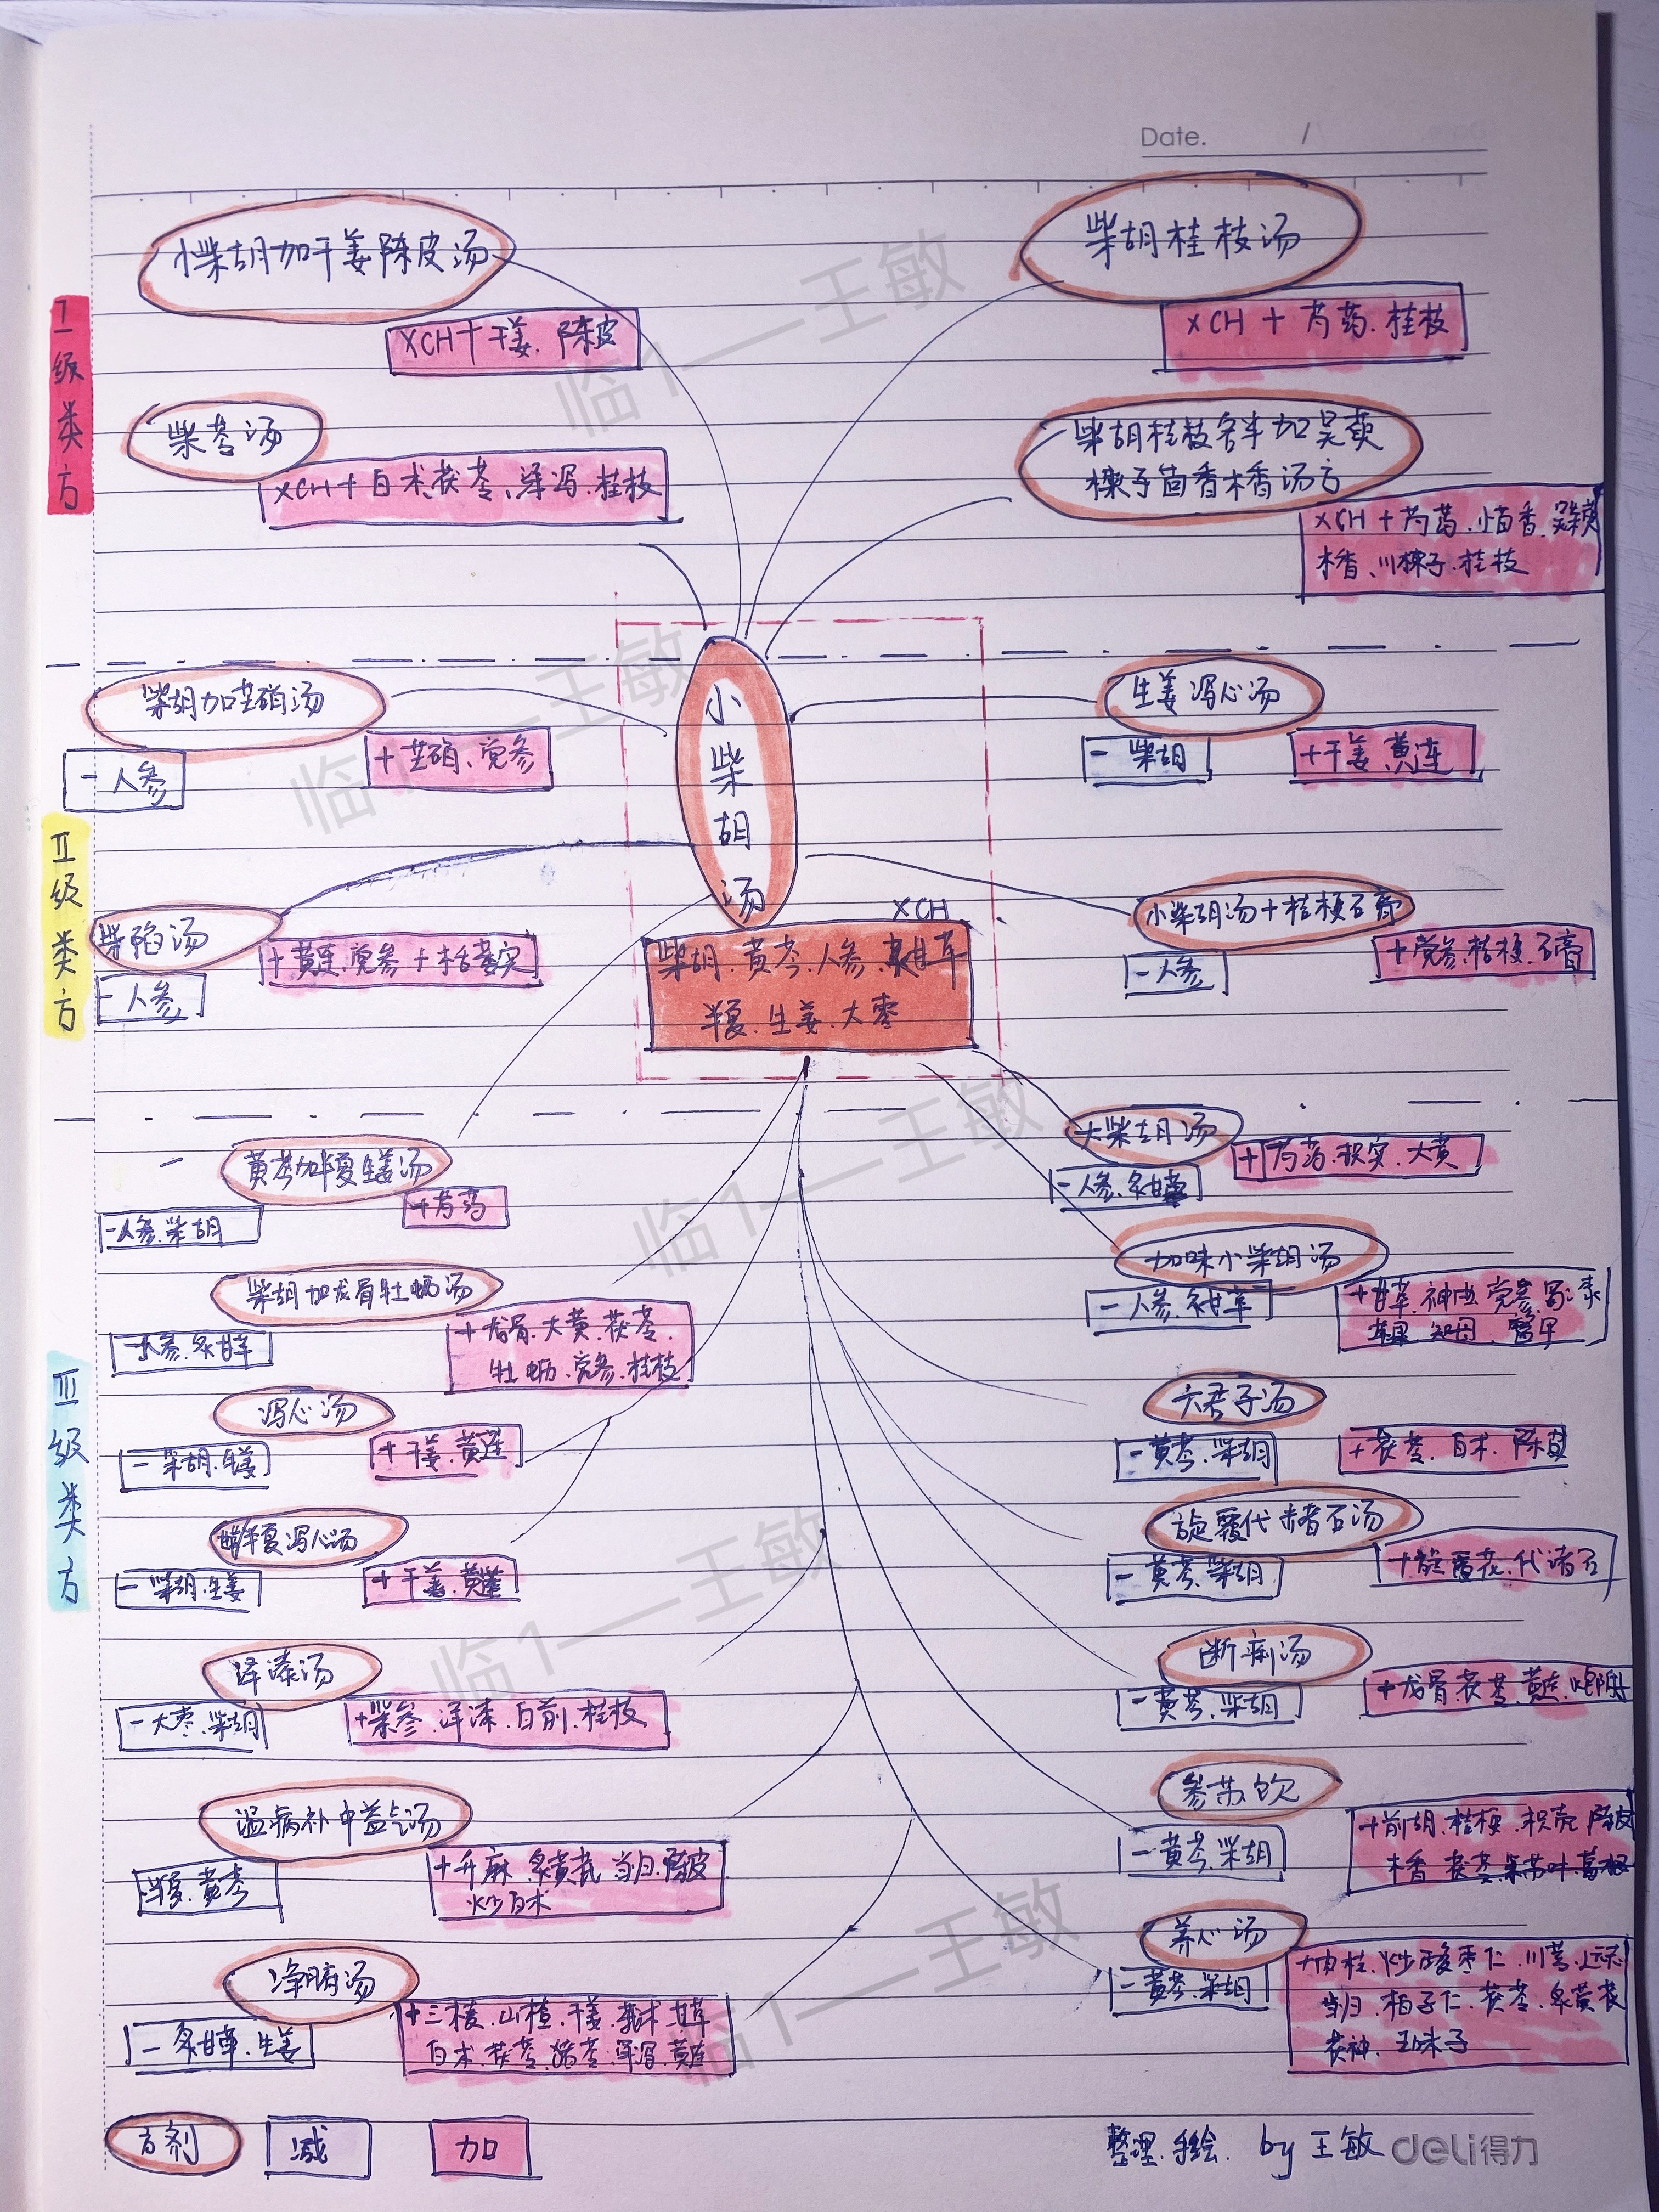 Date. /
小柴胡加干姜陈皮汤
XCH+干姜、陈皮
柴胡桂枝汤
XCH + 芍药.桂枝
I级类方
柴苓汤
XCH+白术、茯苓、泽泻.桂枝
柴胡桂枝各半加吴萸
楝子茴香木香汤方
XCH+芍药.小茴香.吴茱萸
木香、川楝子.桂枝
柴胡加芒硝汤
-人参
+芒硝、党参
小柴胡汤
生姜泻心汤
-柴胡
+干姜、黄连
II级类方
柴陷汤
-人参
+黄连.党参+栝蒌实
XCH
柴胡.黄芩.人参.炙甘草
半夏.生姜.大枣
小柴胡汤+桔梗石膏
-人参
+党参.桔梗.石膏
III级类方
黄芩加半夏生姜汤
-人参.柴胡
+芍药
大柴胡汤
-人参.炙甘草
+芍药.枳实.大黄
柴胡加龙骨牡蛎汤
-人参.炙甘草
+龙骨.大黄.茯苓.
牡蛎.党参.桂枝
加味小柴胡汤
-人参.炙甘草
+甘草.神曲.党参.蜀漆
草果.知母.
泻心汤
-柴胡.生姜
+干姜.黄连
六君子汤
-黄芩.柴胡
+茯苓.白术.陈皮
甘草半夏泻心汤
-柴胡.生姜
+干姜.黄连
旋覆代赭石汤
-黄芩.柴胡
+旋覆花.代渚石
泽漆汤
-大枣.柴胡
+紫参.泽漆.白前.桂枝
断痢汤
-黄芩.柴胡
+龙骨.茯苓.黄连.炮附片
温病补中益气汤
-半夏.黄芩
+升麻.炙黄芪.当归.陈皮
炒白术
参苏饮
-黄芩.柴胡
+前胡.桔梗.枳壳.陈皮
木香.茯苓.紫苏叶.葛根
净腑汤
-炙甘草.生姜
+三棱.山楂.干姜.莪术.甘草
白术.茯苓.猪苓.泽泻.黄连
养心汤
-黄芩.柴胡
+肉桂.炒酸枣仁.川芎.远志
当归.柏子仁.茯苓.炙黄芪
茯神.五味子
方剂
减
加
整理.手绘. by 王敏
deli得力
临1—王敏
临1—王敏
临1—王敏
临1—王敏
临1—王敏